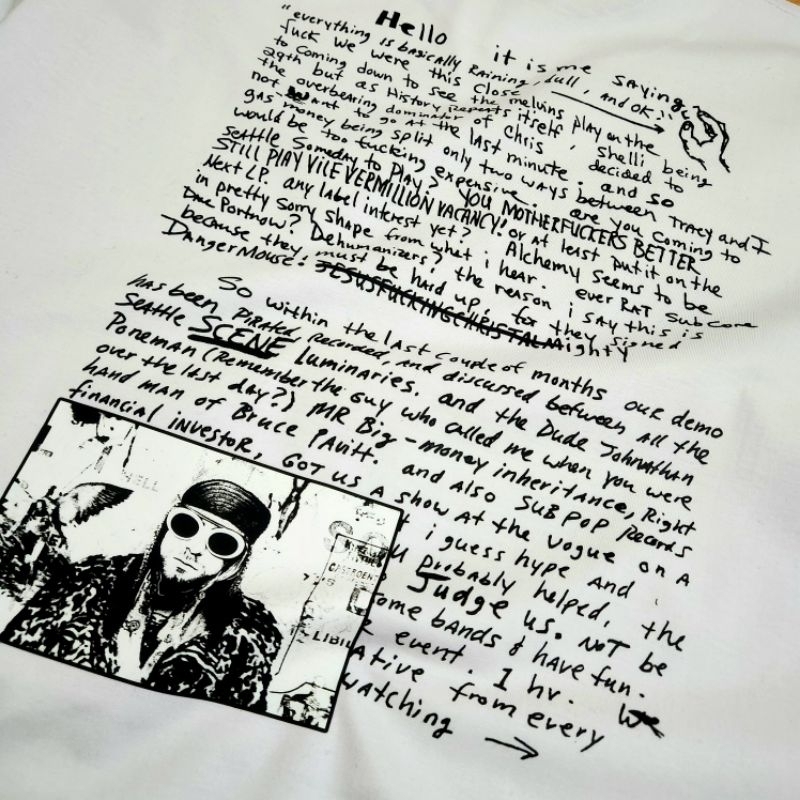 Hello it is me saying,
"everything is basically Raining, dull, and OK."
fuck we were this close
to coming down to see the melvins play on the
29th but as History repeats itself, Shelli being
the overbearing dominator of Chris, decided to
not want to go at the last minute. and so
gas money being split only two ways between TRACY and I
would be too fucking expensive. are you coming to
Seattle Someday to Play? YOU MOTHERFUCKERS BETTER
STILL PLAY VILE VERMILLION VACANCY! or at least put it on the
Next LP. any label interest yet? Alchemy seems to be
in pretty sorry shape from what i hear. ever RAT Subcore
Dave Portnow? Dehumanizers? the reason i say this is
because they must be hard up, for they signed
DangerMouse! JESUSFUCKINGCHRISTALMIGHTY
So within the last couple of months our demo
has been PIRATED, recorded, and discussed between all the
Seattle SCENE Luminaries. and the Dude Johnathan
Poneman (Remember the guy who called me when you were
over the last day?) MR Big-money inheritance, Right
hand man of Bruce PAVITT. and Also SUB POP Records
financial investor, GOT US A SHOW AT the VOGUE ON A
i guess hype and
probably helped, the
Judge us. NOT be
some bands & have fun.
event. 1 hr. We
ative from every
watching →
HELL
LIBIL